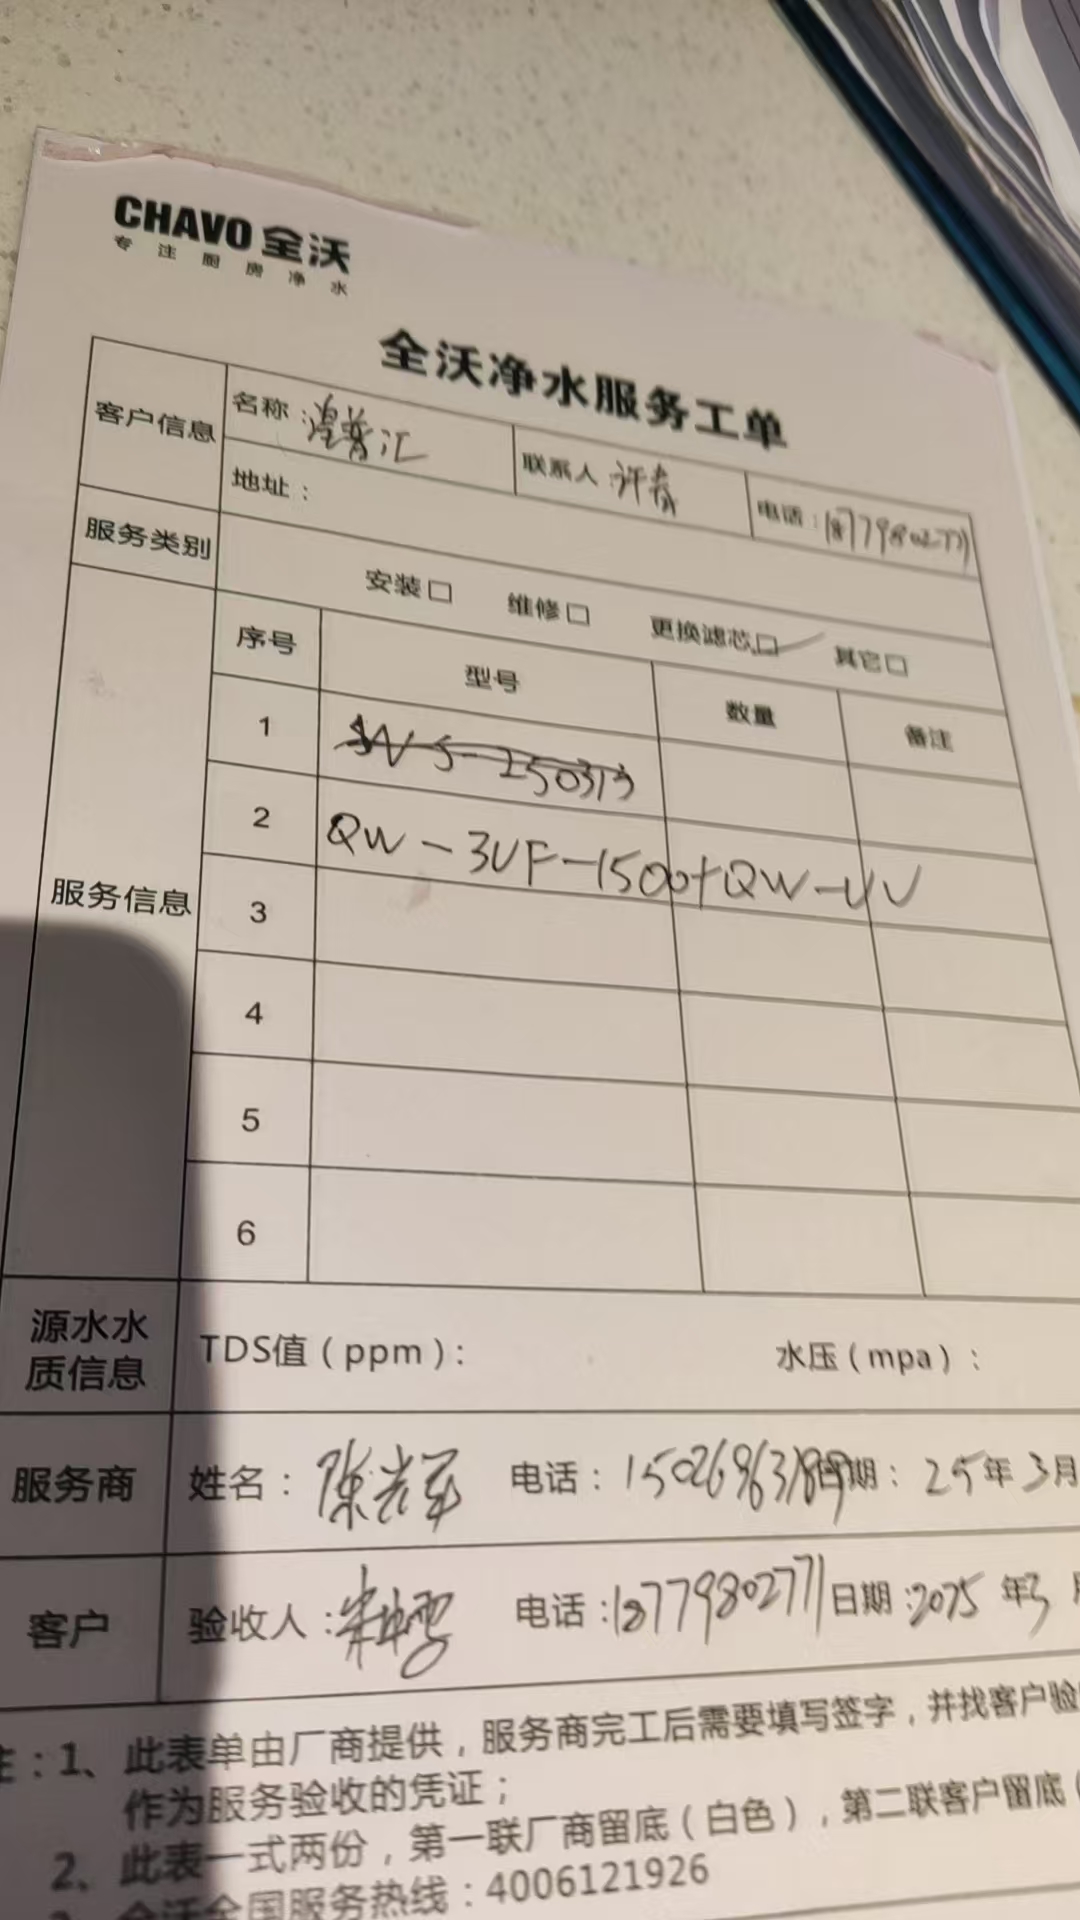 CHAVO 全沃
专注厨房净水
全沃净水服务工单
客户信息 名称：湟普汇 联系人：许春 电话：18779802771
地址：
服务类别 安装□ 维修□ 更换滤芯□✓ 其它□
服务信息 序号 型号 数量 备注
1
2 QW-3UF-1500+QW-UV
3
4
5
6
源水水质信息 TDS值（ppm）： 水压（mpa）：
服务商 姓名：陈光军 电话：15026963189 日期：25年3月
客户 验收人： 电话：18779802771 日期：2025 年3
注：1、此表单由厂商提供，服务商完工后需要填写签字，并找客户验
作为服务验收的凭证；
2、此表一式两份，第一联厂商留底（白色），第二联客户留底（
3、全沃全国服务热线：4006121926